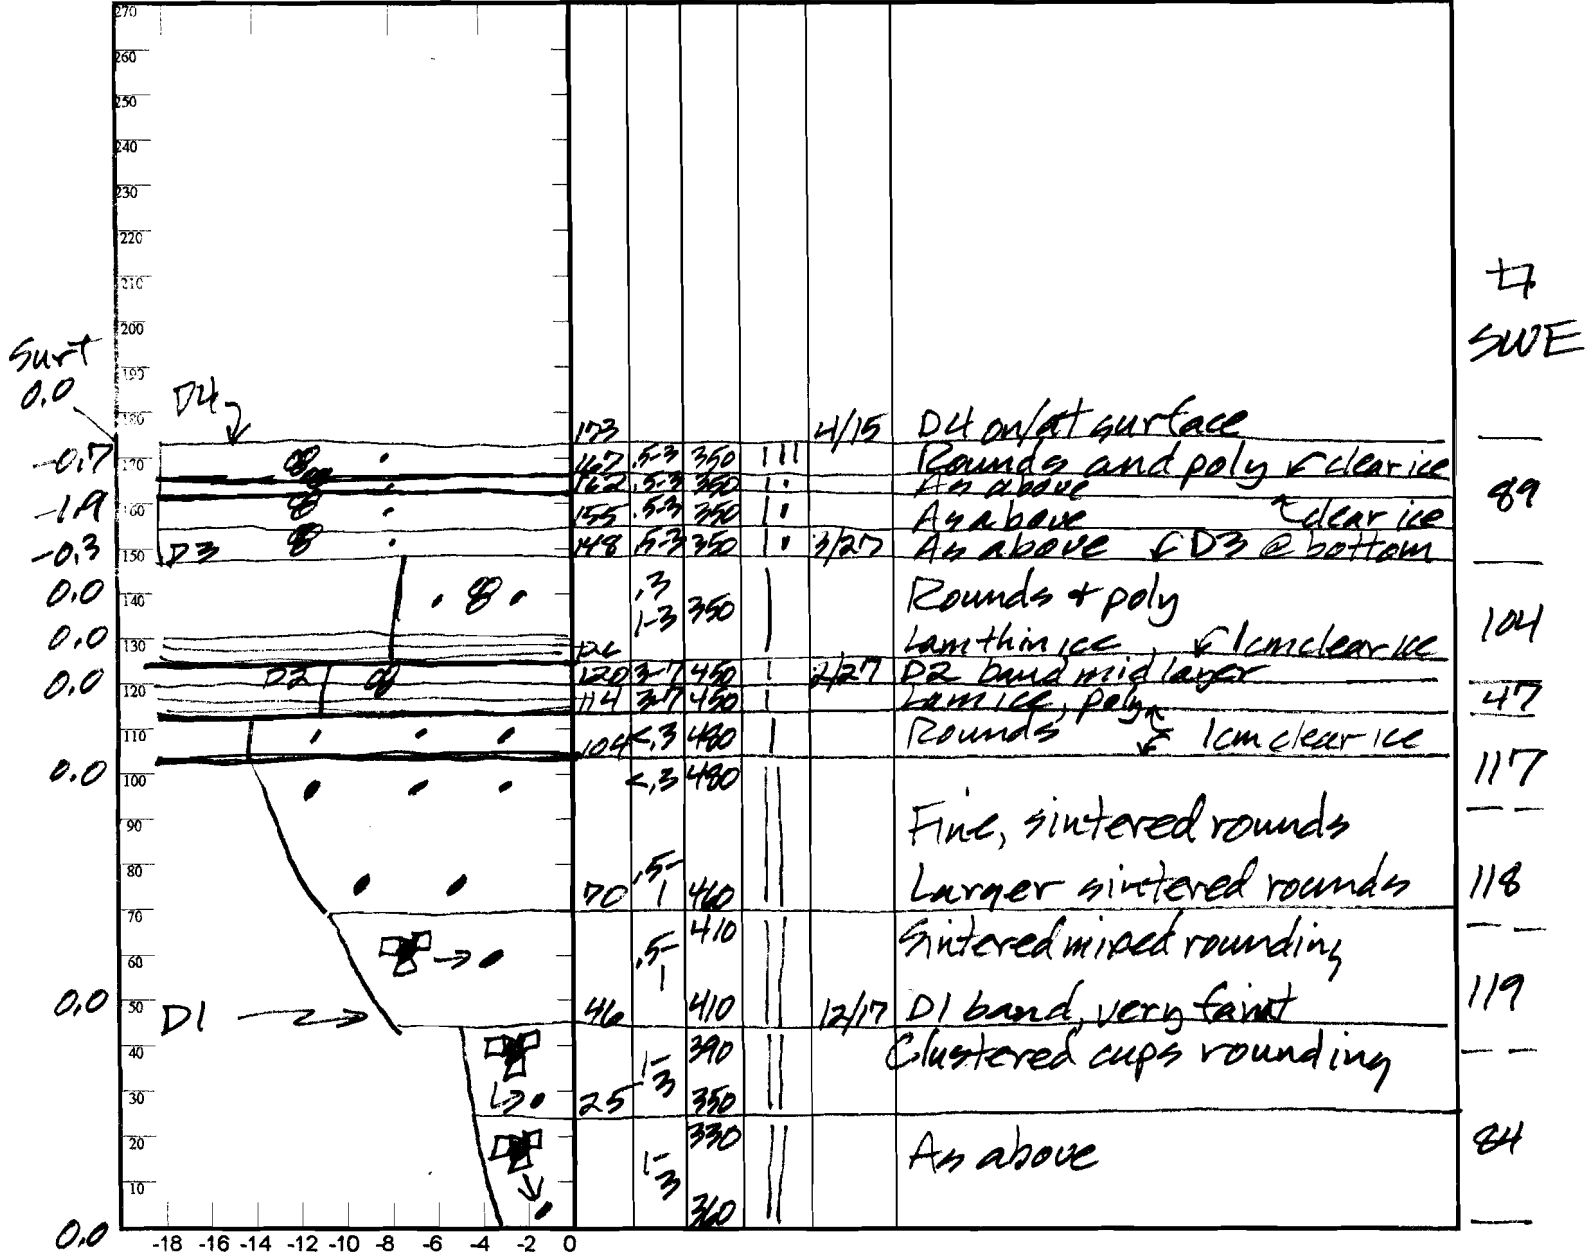 270
260
250
240
230
220
210
200
190
180
170
160
150
140
130
120
110
100
90
80
70
60
50
40
30
20
10
-18 -16 -14 -12 -10 -8 -6 -4 -2 0
Surf
0.0
-0.7
-1.9
-0.3
0.0
0.0
0.0
0.0
0.0
0.0
D4
D3
D2
D1
173 4/15 D4 on/at surface
167 .5-3 350 Rounds and poly clear ice
162 .5-3 350 As above
155 .5-3 350 As above clear ice
148 .5-3 350 3/27 As above D3 @ bottom
.3
1-3 350 Rounds + poly
Lam thin ice, 1cm clear ice
120 3-7 450 2/27 D2 band mid layer
114 3-7 450 Lam ice, poly
104 <.3 480 Rounds 1cm clear ice
<.3 480
Fine, sintered rounds
.5-
70 1 460 Larger sintered rounds
410 Sintered mixed rounding
.5-
1
46 410 12/17 D1 band, very faint
390 Clustered cups rounding
1-
3
25 350
330 As above
1-
3
360
SWE
89
104
47
117
118
119
84